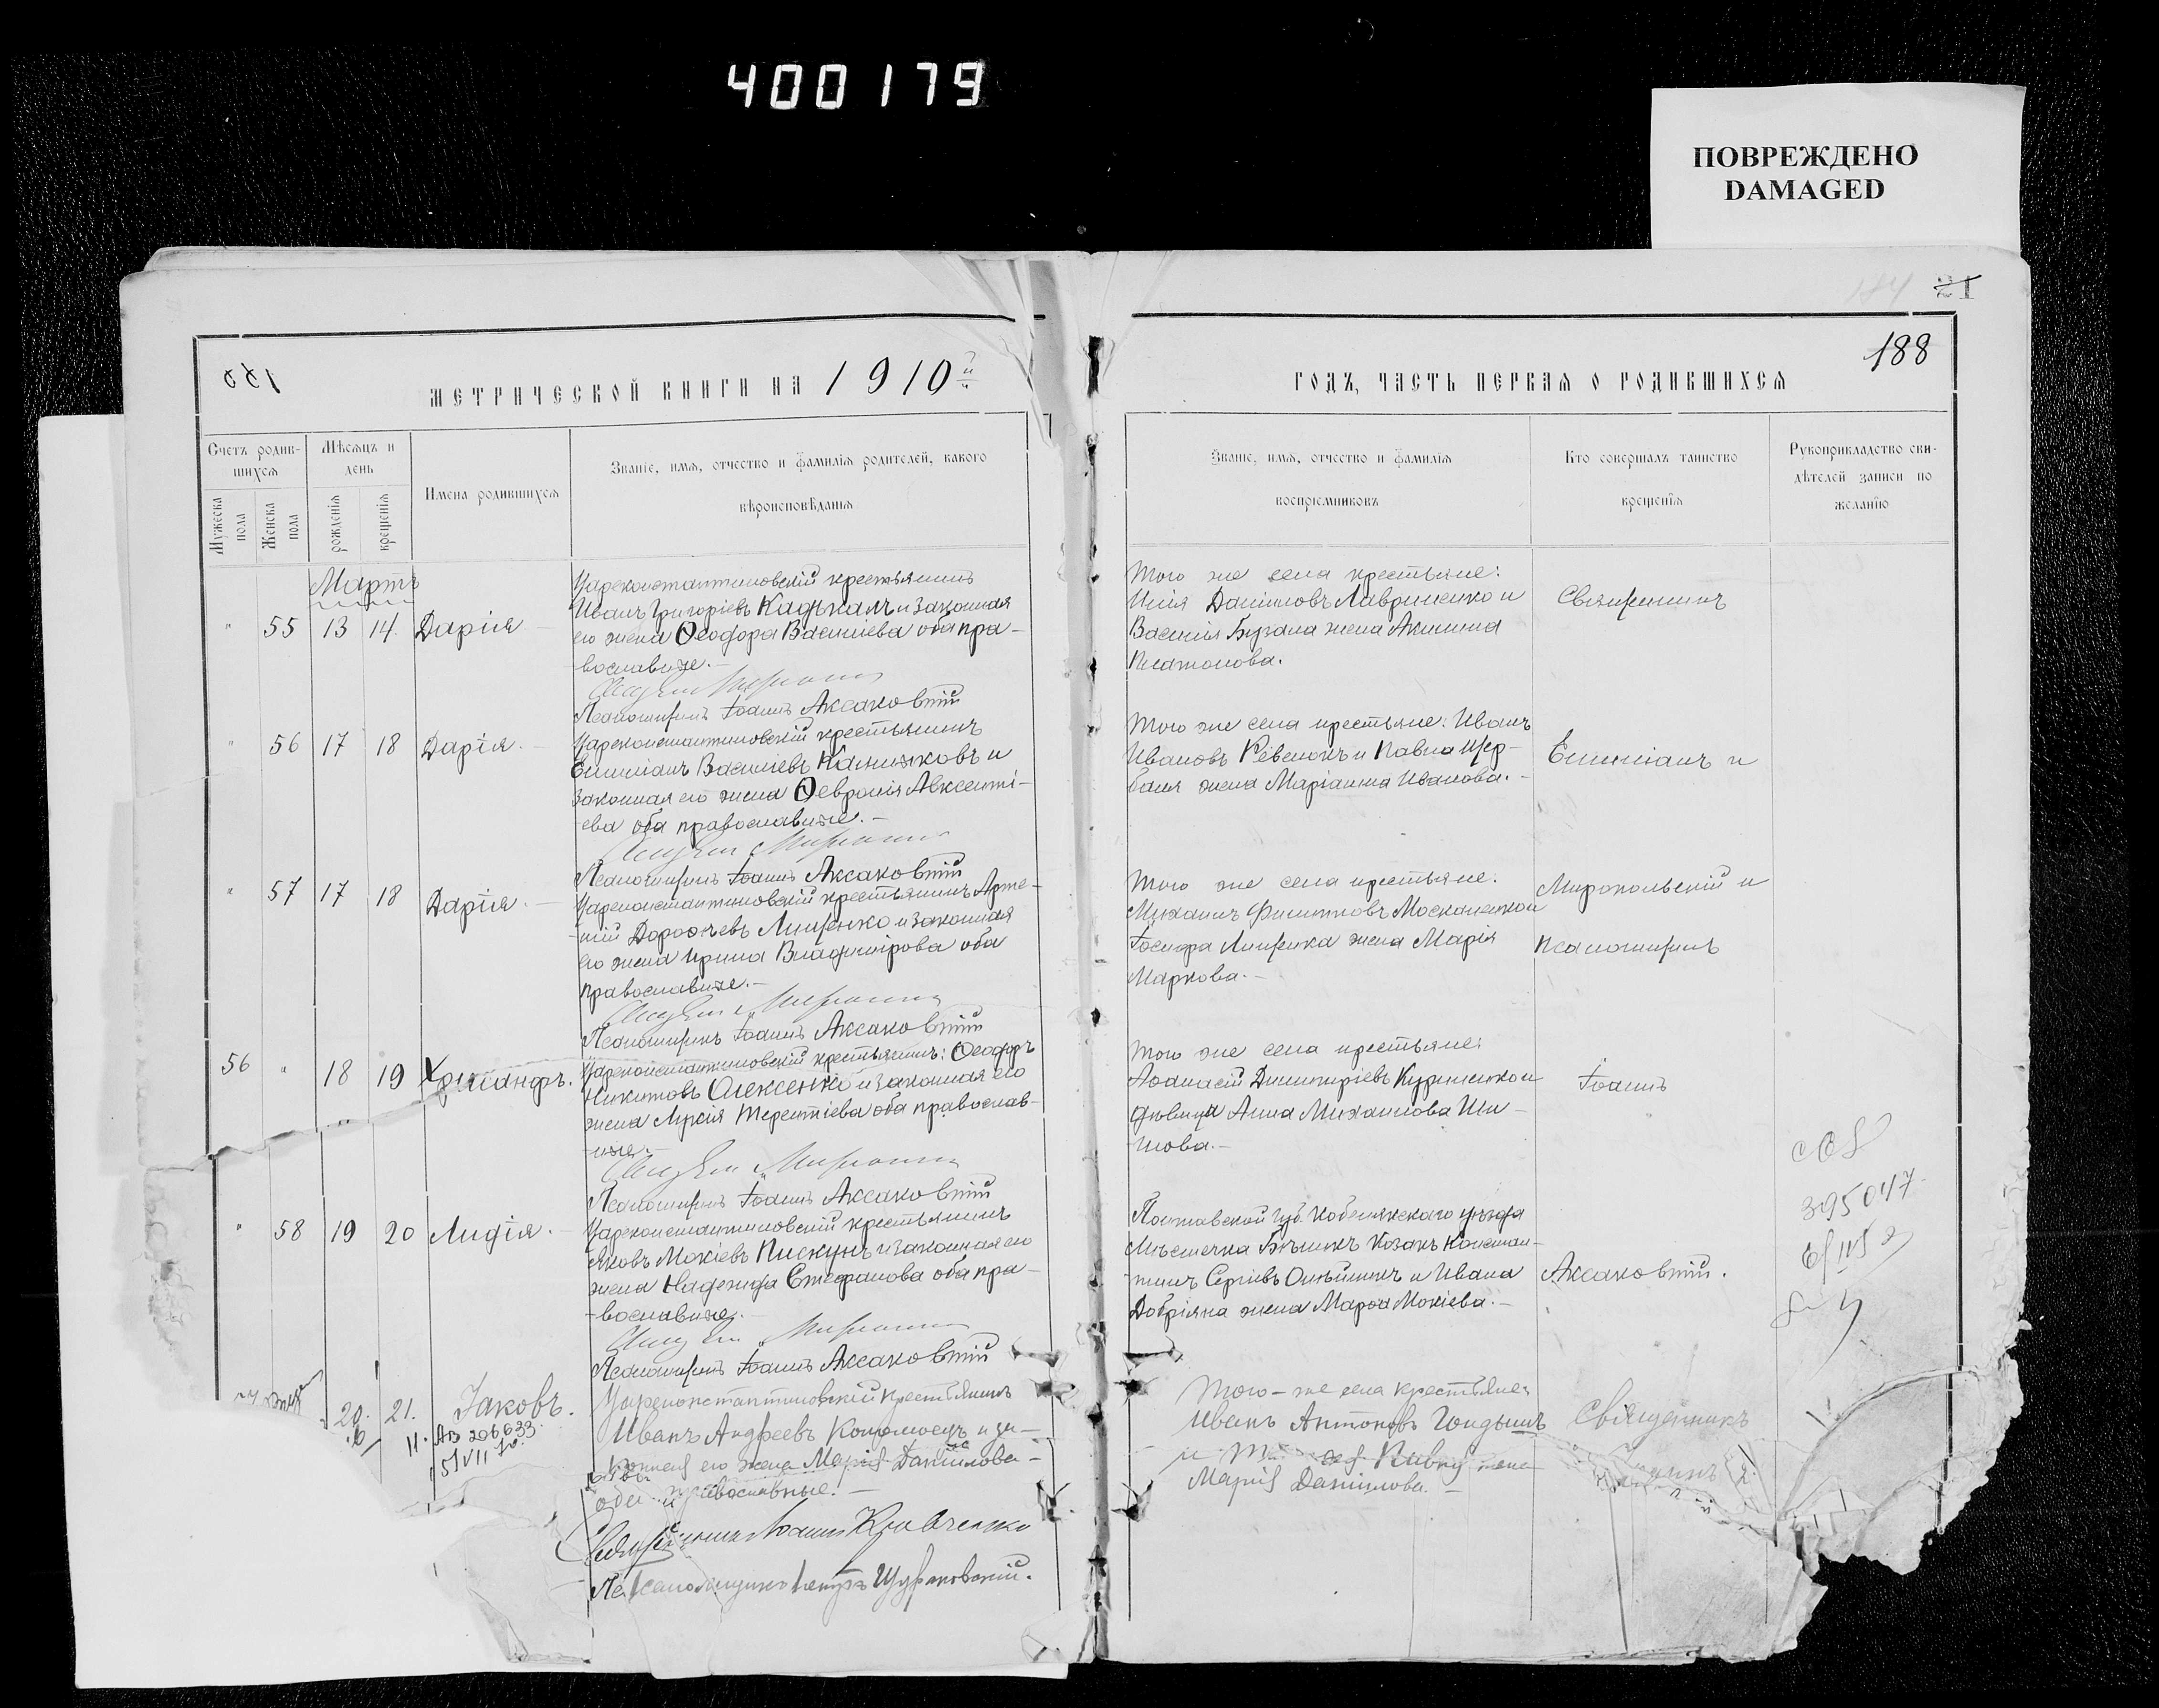 400179
ПОВРЕЖДЕНО
DAMAGED
21
188
МЕТРИЧЕСКОЙ КНИГИ НА 1910й
ГОДЪ, ЧАСТЬ ПЕРВАЯ О РОДИВШИХСЯ
Счетъ родив-
шихся
Мѣсяцъ и
день
Мужеска
пола
Женска
пола
рожденія
крещенія
Имена родившихся
Званіе, имя, отчество и фамилія родителей, какого
вѣроисповѣданія
Званіе, имя, отчество и фамилія
воспріемниковъ
Кто совершалъ таинство
крещенія
Рукоприкладство сви-
дѣтелей записи по
желанію
Мартъ
" 55 13 14. Дарія
Цареконстантиновскій крестьянинъ
Иванъ Григоріевъ Кадькалъ и законная
его жена Ѳеодора Василіева оба пра-
вославные.
Того же села крестьяне:
Илія Даніиловъ Лавриненко и
Василія Бугала жена Акилина
Платонова.
Священникъ
Псаломщикъ Іоаннъ Аксаковскій
" 56 17 18 Дарія.
Цареконстантиновскій крестьянинъ
Емиліанъ Василіевъ Калижковъ и
законная его жена Ѳевронія Авксенті-
ева оба православные.
Того же села крестьяне: Иванъ
Ивановъ Ревенокъ и Павла Щер-
баня жена Маріанна Иванова.
Емиліанъ и
Псаломщикъ Іоаннъ Аксаковскій
" 57 17 18 Дарія.
Цареконстантиновскій крестьянинъ Арте-
мій Дороѳеевъ Лищенко и законная
его жена Ирина Владимірова оба
православные.
Того же села крестьяне:
Михаилъ Филипповъ Москаленко и
Іосифа Лищенка жена Марія
Маркова.
Миропольскій и
псаломщикъ
Псаломщикъ Іоаннъ Аксаковскій
56 " 18 19 Хрисанфъ.
Цареконстантиновскій крестьянинъ: Ѳеодоръ
Никитовъ Олексенко и законная его
жена Лукія Терентіева оба православ-
ные.
Того же села крестьяне:
Аѳанасій Димитріевъ Куриленко и
дѣвица Анна Михаилова Ши-
лова.
Іоаннъ
Псаломщикъ Іоаннъ Аксаковскій
" 58 19 20 Лидія.
Цареконстантиновскій крестьянинъ
Яковъ Мокіевъ Пискунъ и законная его
жена Надежда Стефанова оба пра-
вославные.
Полтавской губ. Кобелякскаго уѣзда
Мѣстечка Бѣликъ Козакъ Констан-
тинъ Сергіевъ Олѣйникъ и Ивана
Добріяна жена Марѳа Мокіева.
Аксаковскій.
395047
Псаломщикъ Іоаннъ Аксаковскій
20. 21. Іаковъ.
АВ 206633
Цареконстантиновскій крестьянинъ
Иванъ Андреевъ Коломоецъ и за-
конная его жена Марія Даніилова
оба православные.
Того-же села крестьяне:
Иванъ Антоновъ Гондынъ
и
Марія Даніилова.
Священникъ
Священникъ Іоаннъ Кравченко
Псаломщикъ Петръ